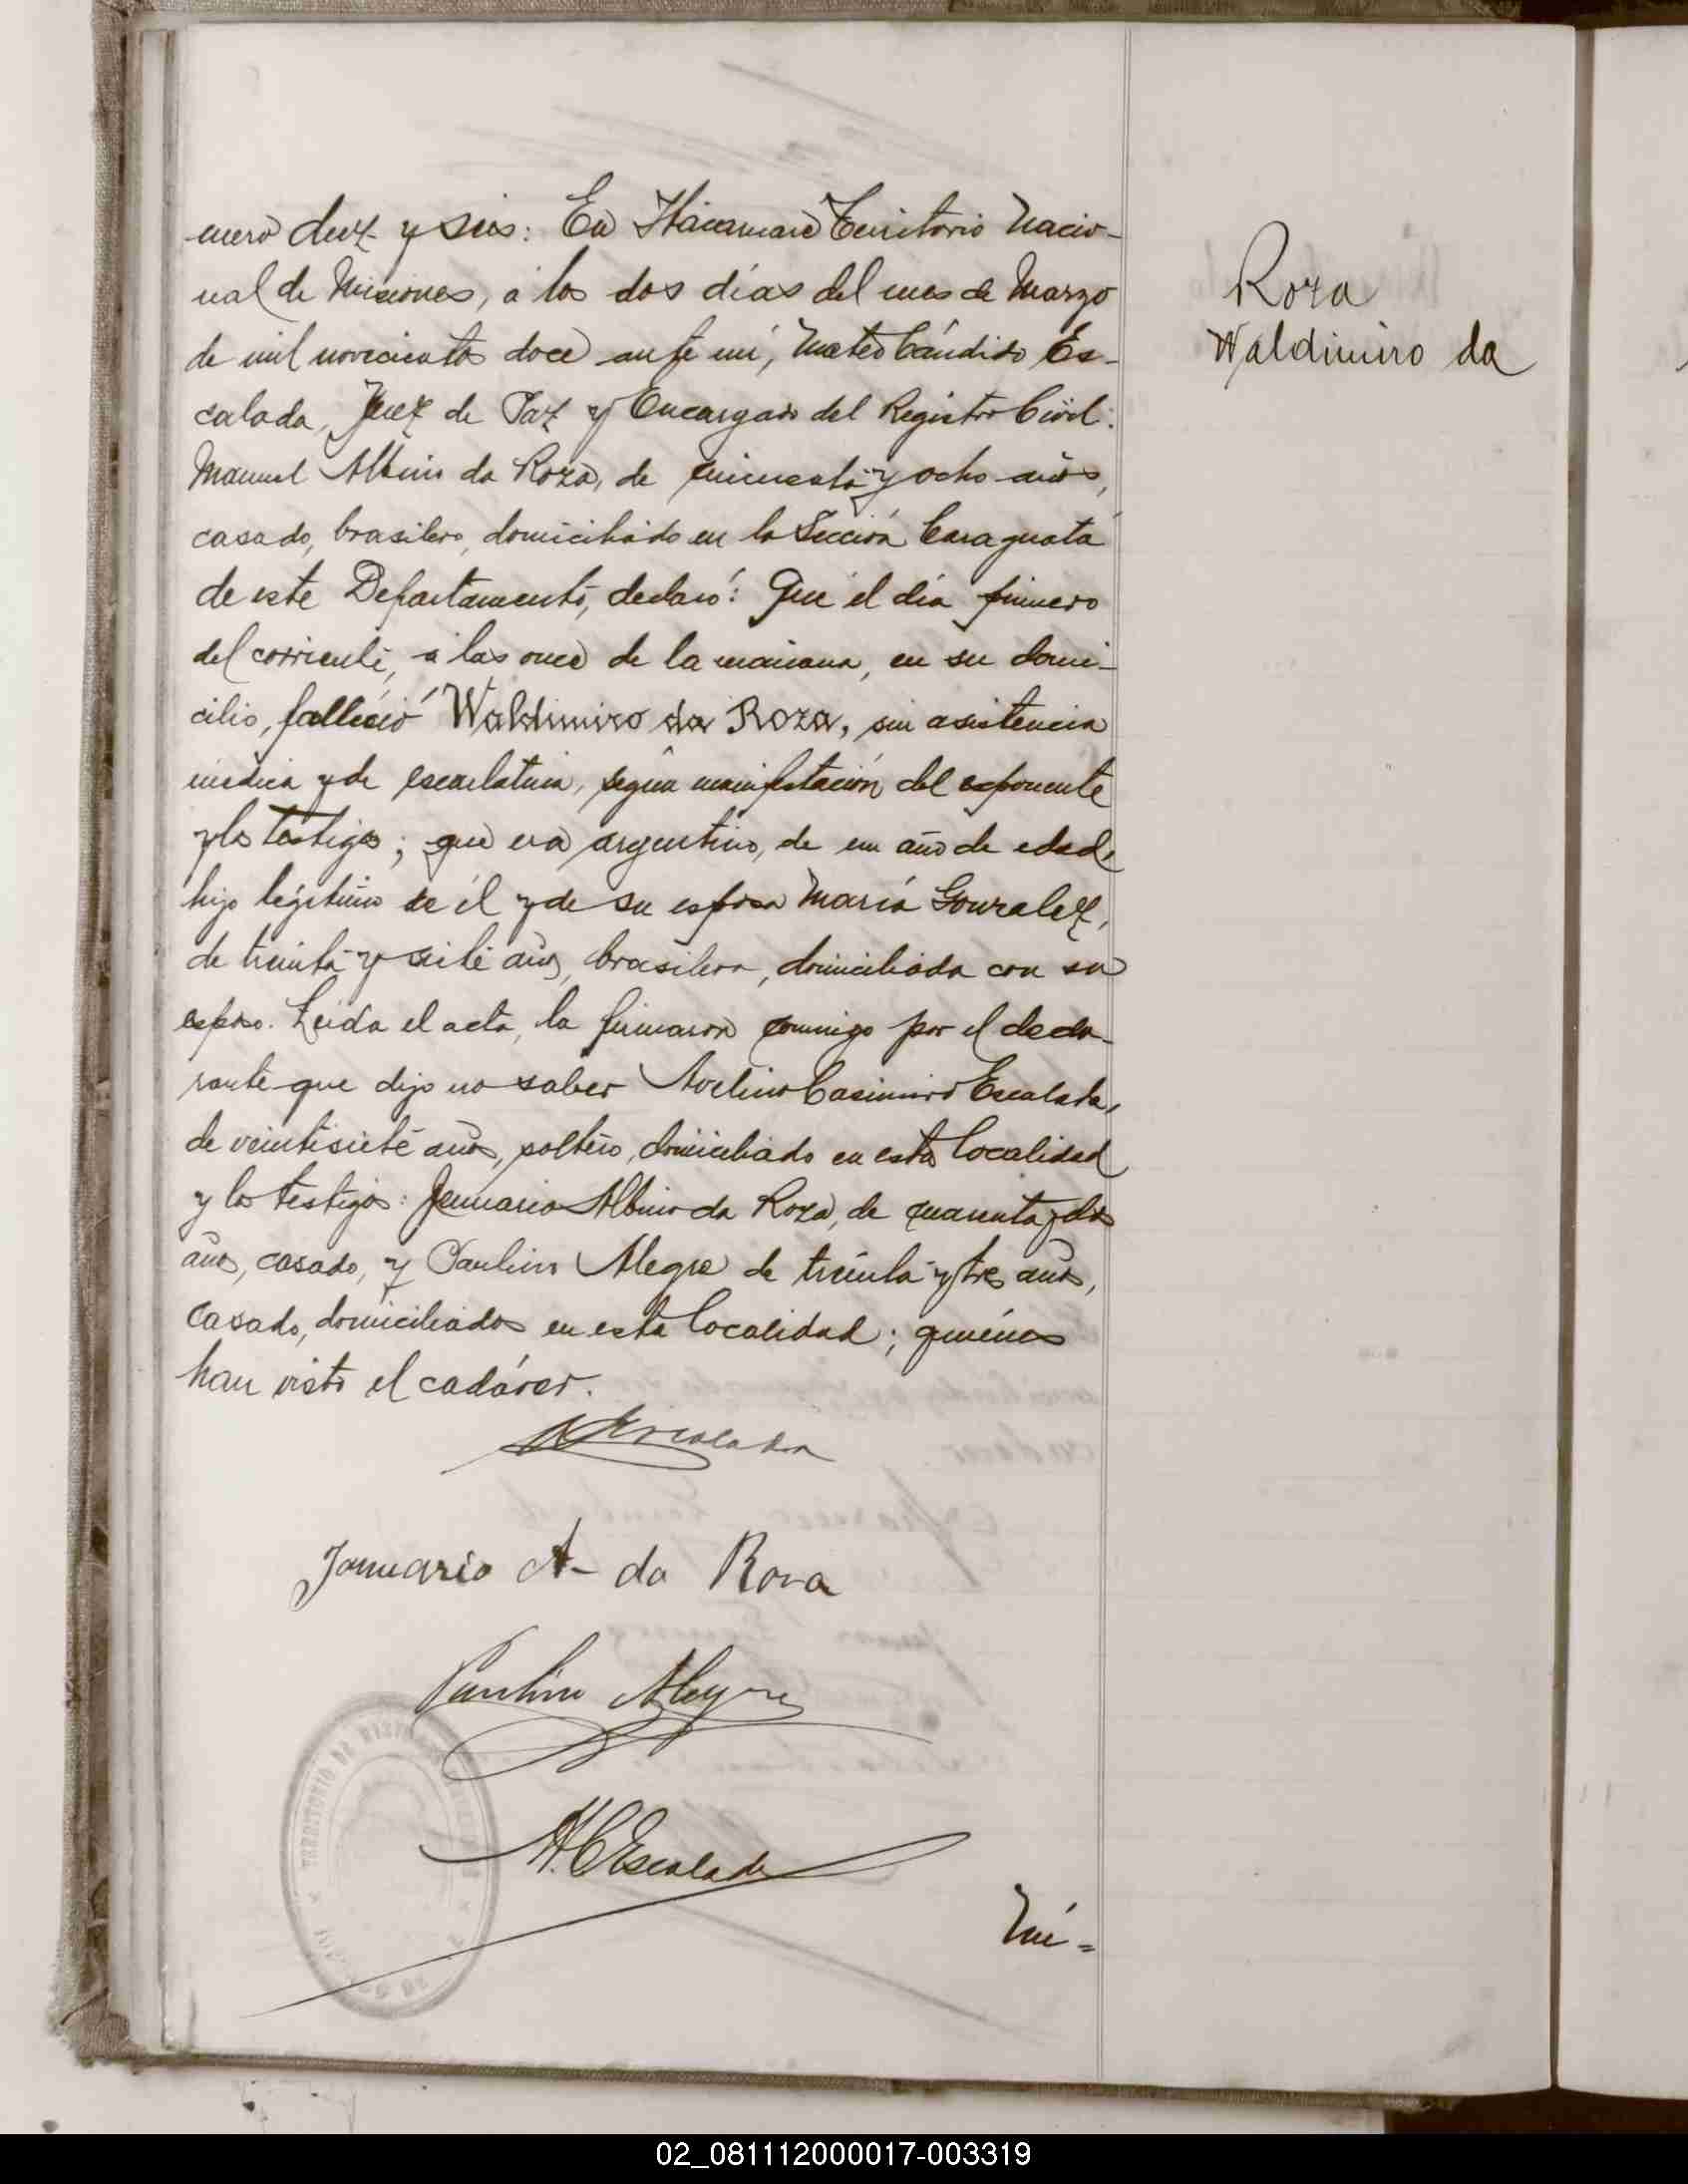 mero diez y seis: En Itacaruaré Territorio Nacio-
nal de Misiones, á los dos días del mes de Marzo
de mil novecientos doce ante mí, Mateo Cándido Es-
calada, Juez de Paz y Encargado del Registro Civil:
Manuel Albino da Roza, de cincuenta y ocho años,
casado, brasilero, domiciliado en la Sección Caraguatá
de este Departamento, declaró: Que el día primero
del corriente, á las once de la mañana, en su domi-
cilio, falleció Waldimiro da Roza, sin asistencia
médica y de escarlatina, según manifestación del exponente
y los testigos; que era argentino, de un año de edad,
hijo legítimo de él y de su esposa María Gonzalez,
de treinta y siete años, brasilera, domiciliada con su
esposo. Leida el acta, la firmaron conmigo por el decla-
rante que dijo no saber Avelino Casimiro Escalada,
de veintisiete años, soltero, domiciliado en esta localidad
y los testigos: Januario Albino da Roza, de cuarenta y dos
años, casado, y Paulino Alegre de treinta y tres años,
casado, domiciliados en esta localidad; quiénes
han visto el cadáver.
Escalada
Januario A- da Roza
Paulino Alegre
M. C Escalada
TERRITORIO DE MISIONES
Nú=
Roza
Waldimiro da
02_081112000017-003319